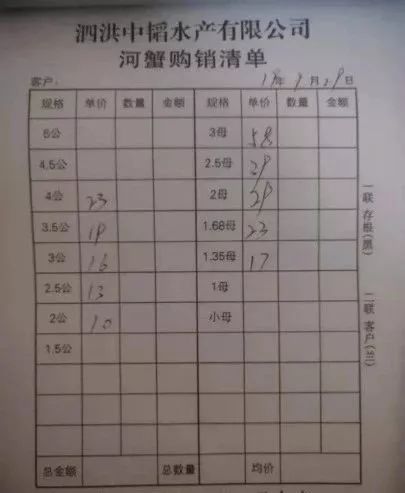 泗洪中韬水产有限公司
河蟹购销清单
客户： 19年9月29日
规格 单价 数量 金额 规格 单价 数量 金额
5公 3母 58
4.5公 2.5母 29
4公 23 2母 29
3.5公 19 1.68母 23
3公 16 1.35母 17
2.5公 13 1母
2公 10 小母
1.5公
总金额 总数量 均价
一联 存根（黑）
二联 客户（兰）